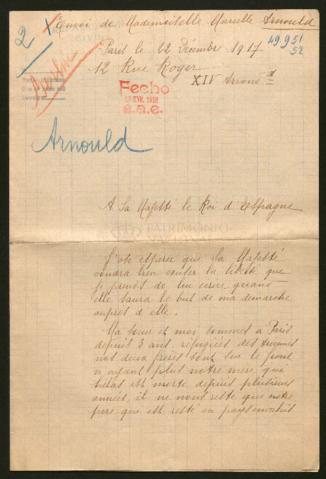 2
Envoi de Mademoiselle Marcelle Arnould
49951
52
Paris le 22 Décembre 1917
12 Rue Roger
XIV Arrond t
Fecho
E.a.e.
Arnould
A Sa Majesté le Roi d'Espagne
PATRIMONIO
NACIONAL
J'ose espérer que Sa Majesté
voudra bien excuser la liberté que
je prends de lui écrire quand
elle saura le but de ma démarche
auprès d'elle.
Ma sœur et moi sommes à Paris
depuis 3 ans, réfugiées des Ardennes
nos deux frères sont sur le front
n'ayant plus notre mère qui
hélas est morte depuis plusieurs
années, il ne nous reste que notre
père qui est resté en pays envahi